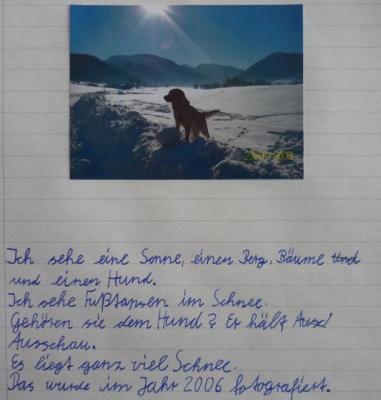 Ich sehe eine Sonne, einen Berg, Bäume und
und einen Hund.
Ich sehe Fußtapsen im Schnee.
Gehören sie dem Hund? Er hält Aus
Ausschau.
Es liegt ganz viel Schnee.
Das wurde im Jahr 2006 fotografiert.